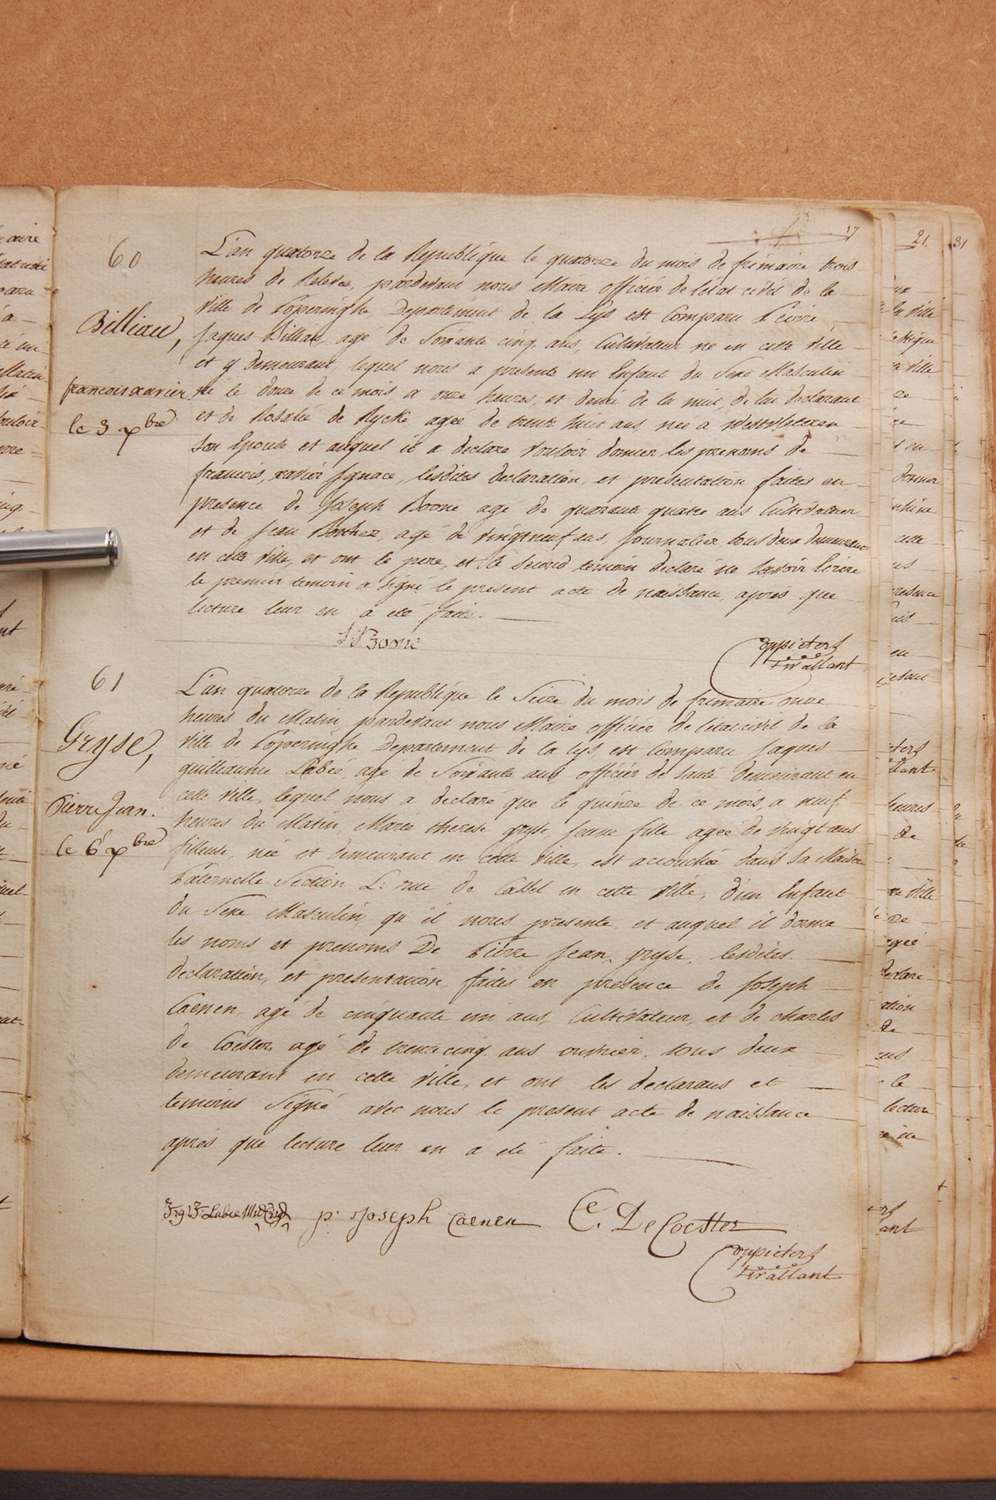 17
60
Billiau,
francois xavier
le 3 xbre
L'an quatorze de la République le quatorze du mois de frimaire trois
heures de Relevée, pardevant nous Maire officier de l'état civil de la
ville de Poperinghe Departement de la Lys est comparu Pierre
Jaques Billiau, agé de Soixante cinq ans, Cultivateur né en cette ville
et y demeurant, lequel nous a presenté un Enfant du Sexe Masculin
né le douze de ce mois a onze heures et demi de la nuit, de lui declarant
et de Rosalie de Rycke agée de trente huit ans née a Westvleteren
son Epouse et auquel il a declaré vouloir donner les prenoms de
francois, xavier Ignace, lesdites declaration et presentation faites en
presence de Joseph Boone agé de quarante quatre ans Cultivateur
et de Jean agé de vingt neuf ans, Journalier tous deux demeurans
en cette ville, et ont le pere, et le second temoin declaré ne savoir Ecrire
le premier temoin a signé le present acte de naissance, après que
lecture leur en a été faite.
J Boone
Coppieters
tirallant
61
Gryse,
Pierre Jean.
le 6 xbre
L'an quatorze de la République le Seize du mois de frimaire onze
heures du Matin, pardevant nous Maire officier de l'etat civil de la
ville de Poperinghe Departement de la Lys est comparu Jaques
guillaume Labée, agé de Soixante ans officier de santé demeurant en
cette ville, lequel nous a declaré que le quinze de ce mois, a neuf
heures du Matin, Marie therese gryse, Jeune fille agée de vingt ans
fileuse, née et demeurant en cette ville, est accouchée dans sa Maison
Paternelle Section L: rue de Cassel en cette ville, d'un Enfant
du Sexe Masculin qu'il nous presente, et auquel il donne
les noms et prenoms De Pierre Jean, gryse, lesdites
declaration, et presentation, faites en presence de Joseph
Caenen, agé de cinquante un ans, Cultivateur, et de charles
de Coester, agé de trente cinq ans ouvrier, tous deux
demeurant en cette ville, et ont les declarans et
temoins Signé avec nous le present acte de naissance
après que lecture leur en a été faite.
p: Joseph Caenen
C. De Coester
Coppieters
tirallant
21
31